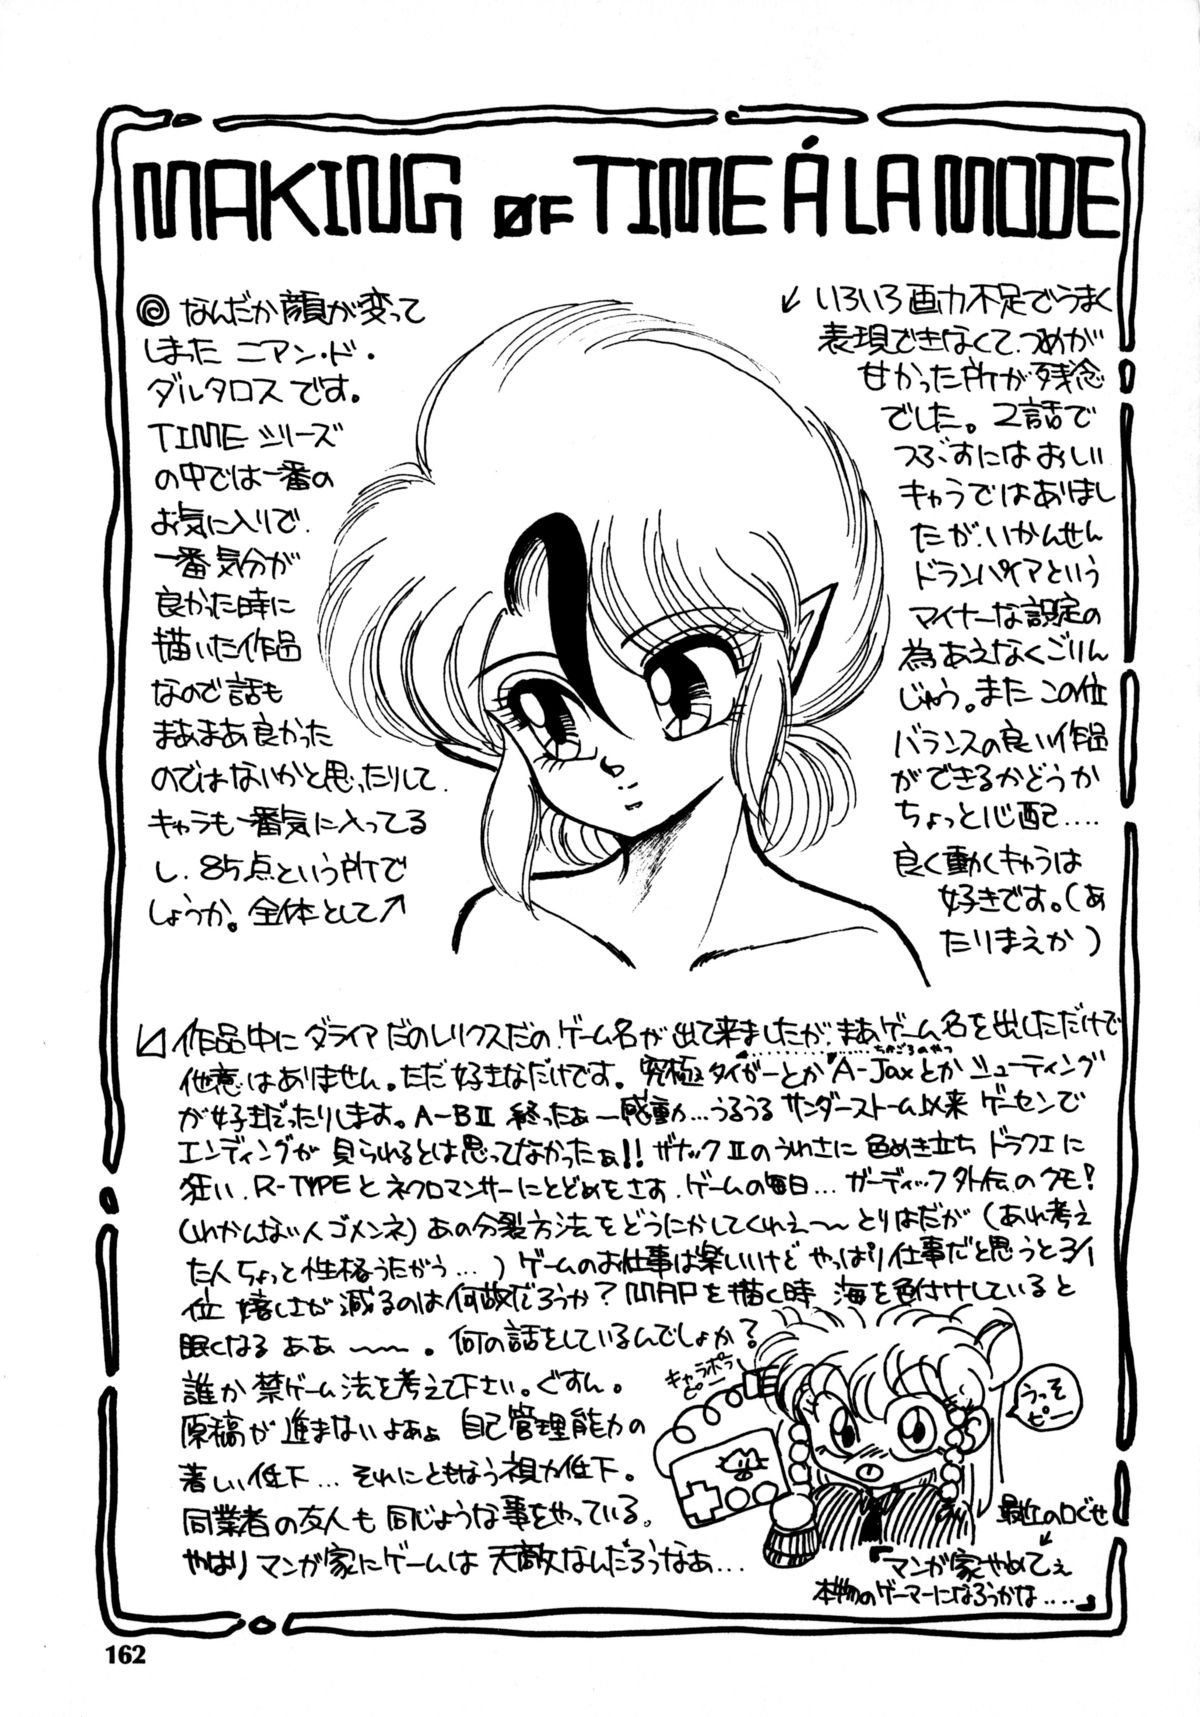 MAKING ØF TIME Á LA MODE
◎ なんだか顔が変って
しまった ニアン・ド・
ダルタロスです。
TIMEシリーズ
の中では一番の
お気に入りで、
一番気分が
良かった時に
描いた作品
なので話も
まあまあ良かった
のではないかと思ったりして
キャラも一番気に入ってる
し、85点という所で
しょうか。全体として↗
↙ いろいろ画力不足でうまく
表現できなくて、つめが
甘かった所が残念
でした。2話で
つぶすにはおしい
キャラではありまし
たが、いかんせん
ドランパイアという
マイナーな設定の
為あえなくごりん
じゅう。また この位
バランスの良い作品
ができるかどうか
ちょっと心配‥‥
良く動くキャラは
好きです。(あ
たりまえか)
作品中に ダライアだのレリクスだの、ゲーム名が出て来ましたが、まあゲーム名を出しただけで
他意はありません。ただ好きなだけです。究極タイガーとか A-Jaxとか シューティング
ちかごろのやつ
が好きだったりします。A-BⅡ 終ったぁ〜感動‥‥うるうる サンダーストーム以来 ゲーセンで
エンディングが 見られるとは思ってなかったぁ!! ザナックⅡのうわさに 色めき立ち ドラクエに
狂い、R-TYPEと ネクロマンサーにとどめをさす、ゲームの毎日… ガーディック外伝のクモ!
(わかんない人ゴメンネ) あの分裂方法をどうにかしてくれぇ〜〜 とりはだが (あれ考え
た人ちょっと性格うたがう…) ゲームのお仕事は楽しいけど やっぱり仕事だと思うと3/1
位 嬉しさが減るのは何故だろうか? MAPを描く時 海を色付けしていると
眠くなる ああ 〜〜。何の話をしているんでしょか?
誰か 禁ゲーム法を考えて下さい。ぐすん。
原稿が進まないよおぉ 自己管理能力の
著しい低下… それにともなう視力低下。
同業者の友人も 同じような事をやっている。
やはり マンガ家にゲームは 天敵なんだろうなあ…
キャラポラ
ピー
うっそ
ピー
最近の口ぐせ
「マンガ家やめてぇ
本物のゲーマーになろうかな‥‥」
162